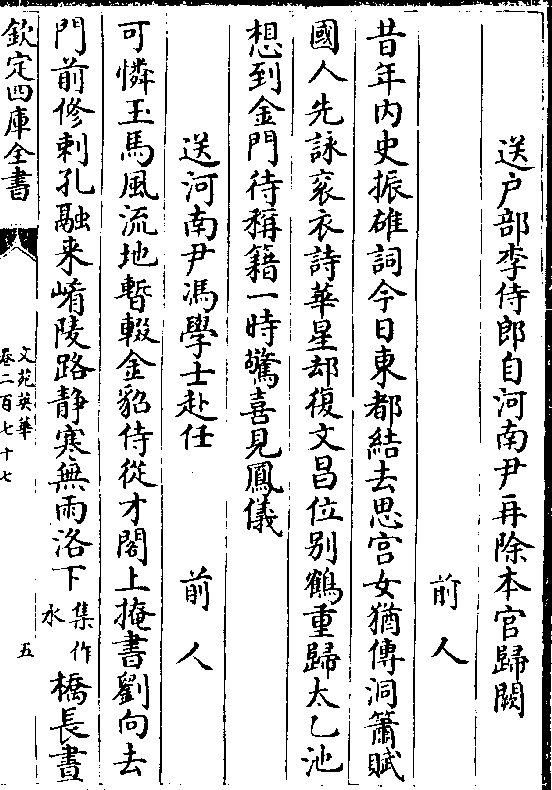 送户部李侍郎自河南尹再除本官歸闕
前人
昔年内史振雄詞今日東都結去思宫女猶傳洞簫賦
國人先詠衮衣詩華星却復文昌位别鶴重歸太乙池
想到金門待稱籍一時驚喜見鳳儀
送河南尹馮學士赴任 前人
可憐玉馬風流地暫輟金貂侍從才閣上掩書劉向去
門前修刺孔融来崤陵路静寒無雨洛下集作水橋長晝
欽定四庫全書
文苑英華
卷二百七十七
五